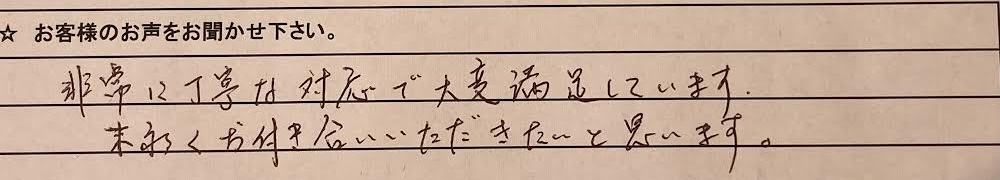 ☆ お客様のお声をお聞かせ下さい。
非常に丁寧な対応で大変満足しています.
末永くお付き合いいただきたいと思います。